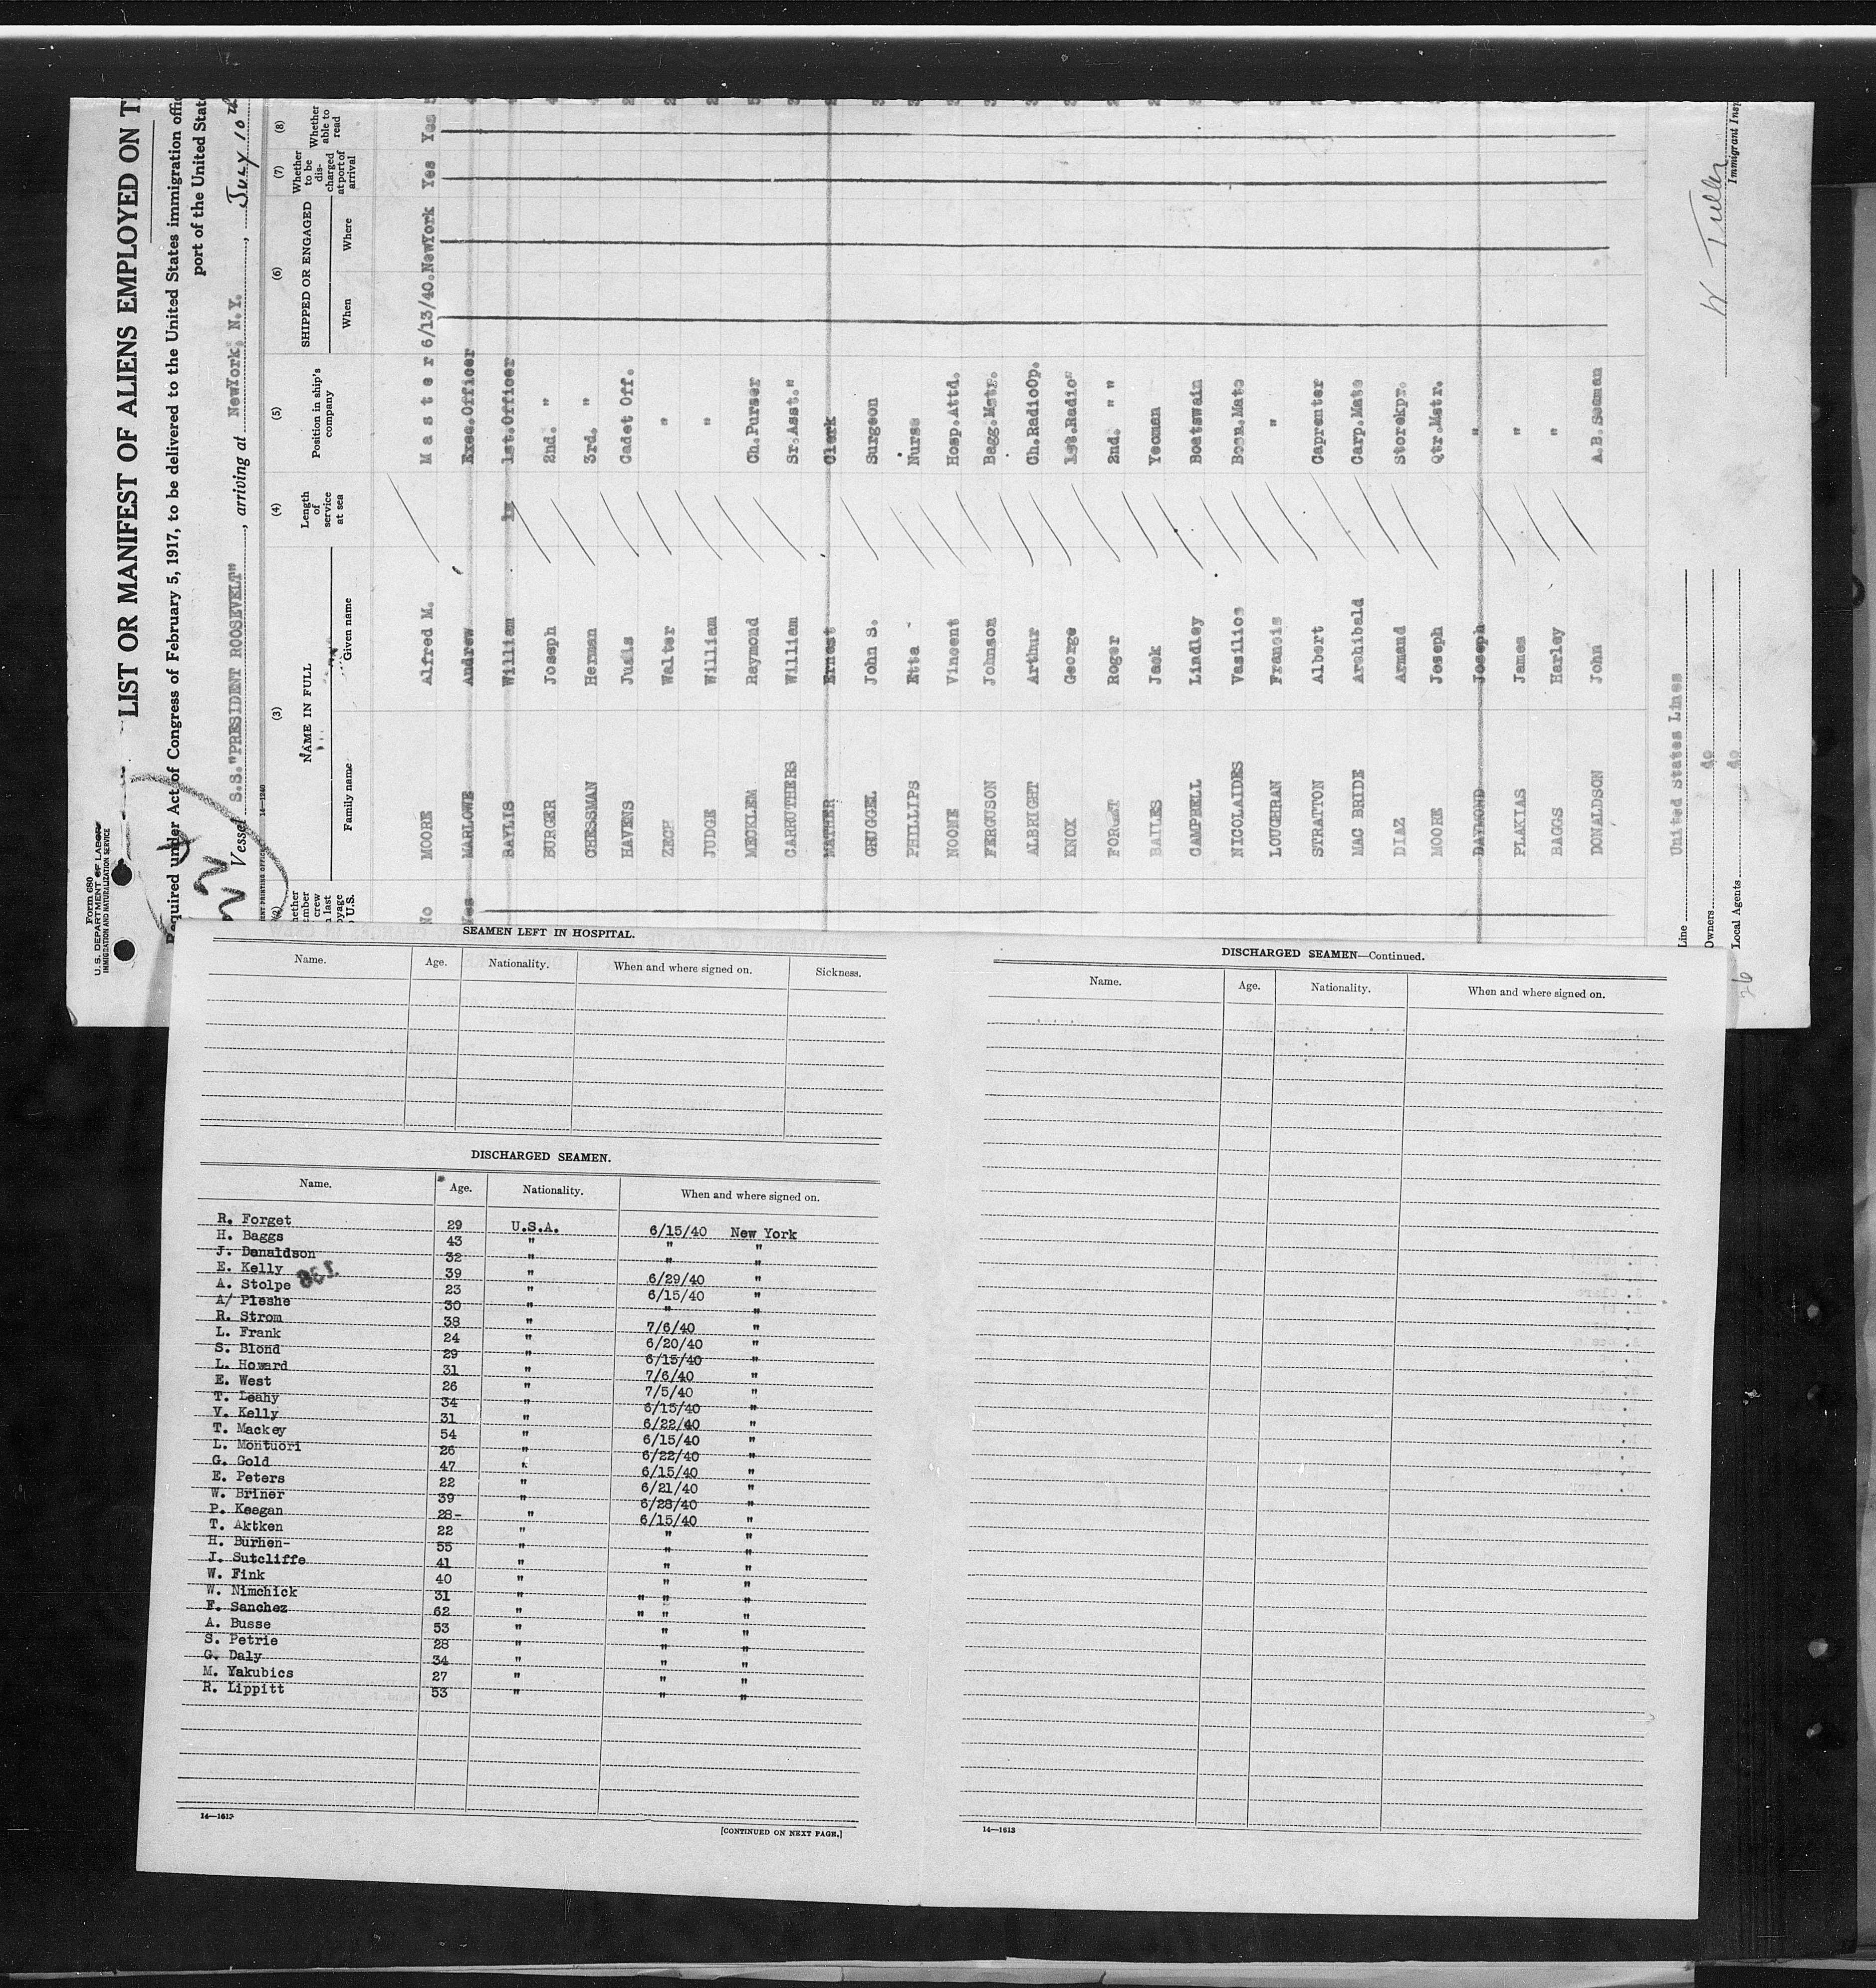 Form 680
U. S. DEPARTMENT OF LABOR
IMMIGRATION AND NATURALIZATION SERVICE
LIST OR MANIFEST OF ALIENS EMPLOYED ON
Required under Act of Congress of February 5, 1917, to be delivered to the United States immigration
port of the United
Vessel S.S."PRESIDENT ROOSEVELT", arriving at NewYork, N.Y., July 10th
14—1240
(3) (4) (5) (6) (7) (8)
NAME IN FULL
Family name Given name
Length of service at sea
Position in ship's company
SHIPPED OR ENGAGED
When Where
Whether to be discharged at port of arrival
Whether able to read
No MOORE Alfred M. M a s t e r 6/13/40. NewYork Yes Yes
Yes MARLOWE Andrew Exec.Officer
BAYLIS William 1st.Officer
BURGER Joseph 2nd. "
CHESSMAN Herman 3rd. "
HAVENS Judis Cadet Off.
ZECH Walter "
JUDGE William "
MECKLEM Raymond Ch.Purser
CARRUTHERS William Sr.Asst."
MATHER Ernest Clerk
GHUGGEL John S. Surgeon
PHILLIPS Etta Nurse
NOONE Vincent Hosp.Attd.
FERGUSON Johnson Bagg.Mstr.
ALBRIGHT Arthur Ch.RadioOp.
KNOX George 1st.Radio"
FORGET Roger 2nd. " "
BAILES Jack Yeoman
CAMPBELL Lindley Boatswain
NICOLAIDES Vasilios Bosn.Mate
LOUGHRAN Francis "
STRATTON Albert Caprenter
MAC BRIDE Archibald Carp.Mate
DIAZ Armand Storekpr.
MOORE Joseph Qtr.Mstr.
DAYMOND Joseph "
PLAKIAS James "
BAGGS Harley "
DONALDSON John A.B.Seaman
Line United States Lines
Owners do
Local Agents do
W Tuller
Immigrant
26
SEAMEN LEFT IN HOSPITAL.
Name. Age. Nationality. When and where signed on. Sickness.
DISCHARGED SEAMEN.
Name. Age. Nationality. When and where signed on.
R. Forget 29 U.S.A. 6/15/40 New York
H. Baggs 43 " " "
J. Danaldson 32 " " "
E. Kelly 39 " 6/29/40 "
A. Stolpe 23 " 6/15/40 "
A/ Pleshe 30 " " "
R. Strom 38 " 7/6/40 "
L. Frank 24 " 6/20/40 "
S. Blond 29 " 6/15/40 "
L. Howard 31 " 7/6/40 "
E. West 26 " 7/5/40 "
T. Leahy 34 " 6/15/40 "
V. Kelly 31 " 6/22/40 "
T. Mackey 54 " 6/15/40 "
L. Montuori 26 " 6/22/40 "
G. Gold 47 " 6/15/40 "
E. Peters 22 " 6/21/40 "
W. Briner 39 " 6/28/40 "
P. Keegan 28- " 6/15/40 "
T. Aktken 22 " " "
H. Burhen- 55 " " "
J. Sutcliffe 41 " " "
W. Fink 40 " " "
W. Nimchick 31 " " " "
F. Sanchez 62 " " " "
A. Busse 53 " " "
S. Petrie 28 " " "
G. Daly 34 " " "
M. Yakubics 27 " " "
R. Lippitt 53 " " "
14—1613
[CONTINUED ON NEXT PAGE.]
DISCHARGED SEAMEN—Continued.
Name. Age. Nationality. When and where signed on.
14—1613